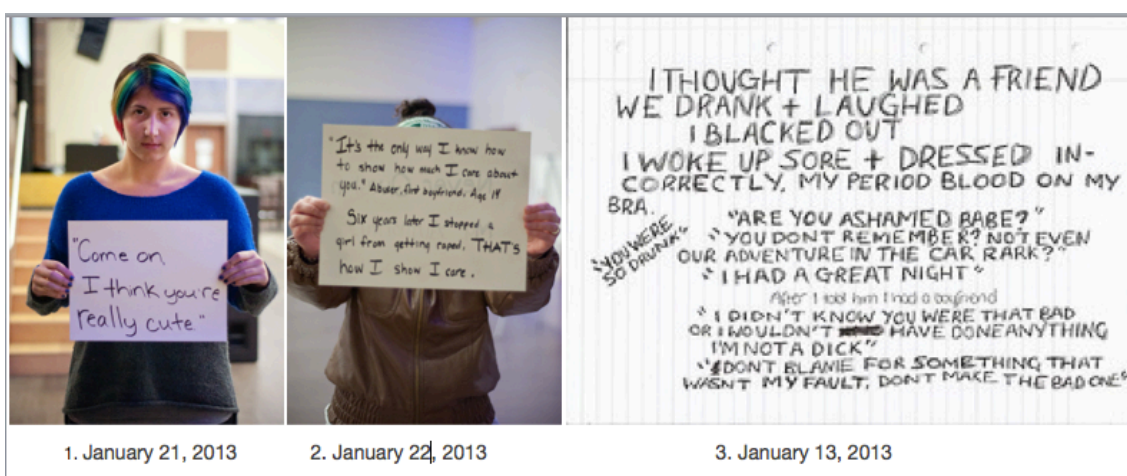 "Come on,
I think you're
really cute"
"It's the only way I know how
to show how much I care about
you." Abuser, first boyfriend, Age 19
Six years later I stopped a
girl from getting raped. THAT'S
how I show I care.
I THOUGHT HE WAS A FRIEND
WE DRANK + LAUGHED
I BLACKED OUT
I WOKE UP SORE + DRESSED IN-
CORRECTLY, MY PERIOD BLOOD ON MY
BRA.
"YOU WERE
SO DRUNK"
"ARE YOU ASHAMED BABE?"
"YOU DONT REMEMBER? NOT EVEN
OUR ADVENTURE IN THE CAR RARK?"
"I HAD A GREAT NIGHT"
After I told him I had a boyfriend
"I DIDN'T KNOW YOU WERE THAT BAD
OR I WOULDN'T HAVE DONE ANYTHING
I'M NOT A DICK"
"DONT BLAME FOR SOMETHING THAT
WASNT MY FAULT, DONT MAKE THE BAD ONE"
1. January 21, 2013
2. January 22, 2013
3. January 13, 2013